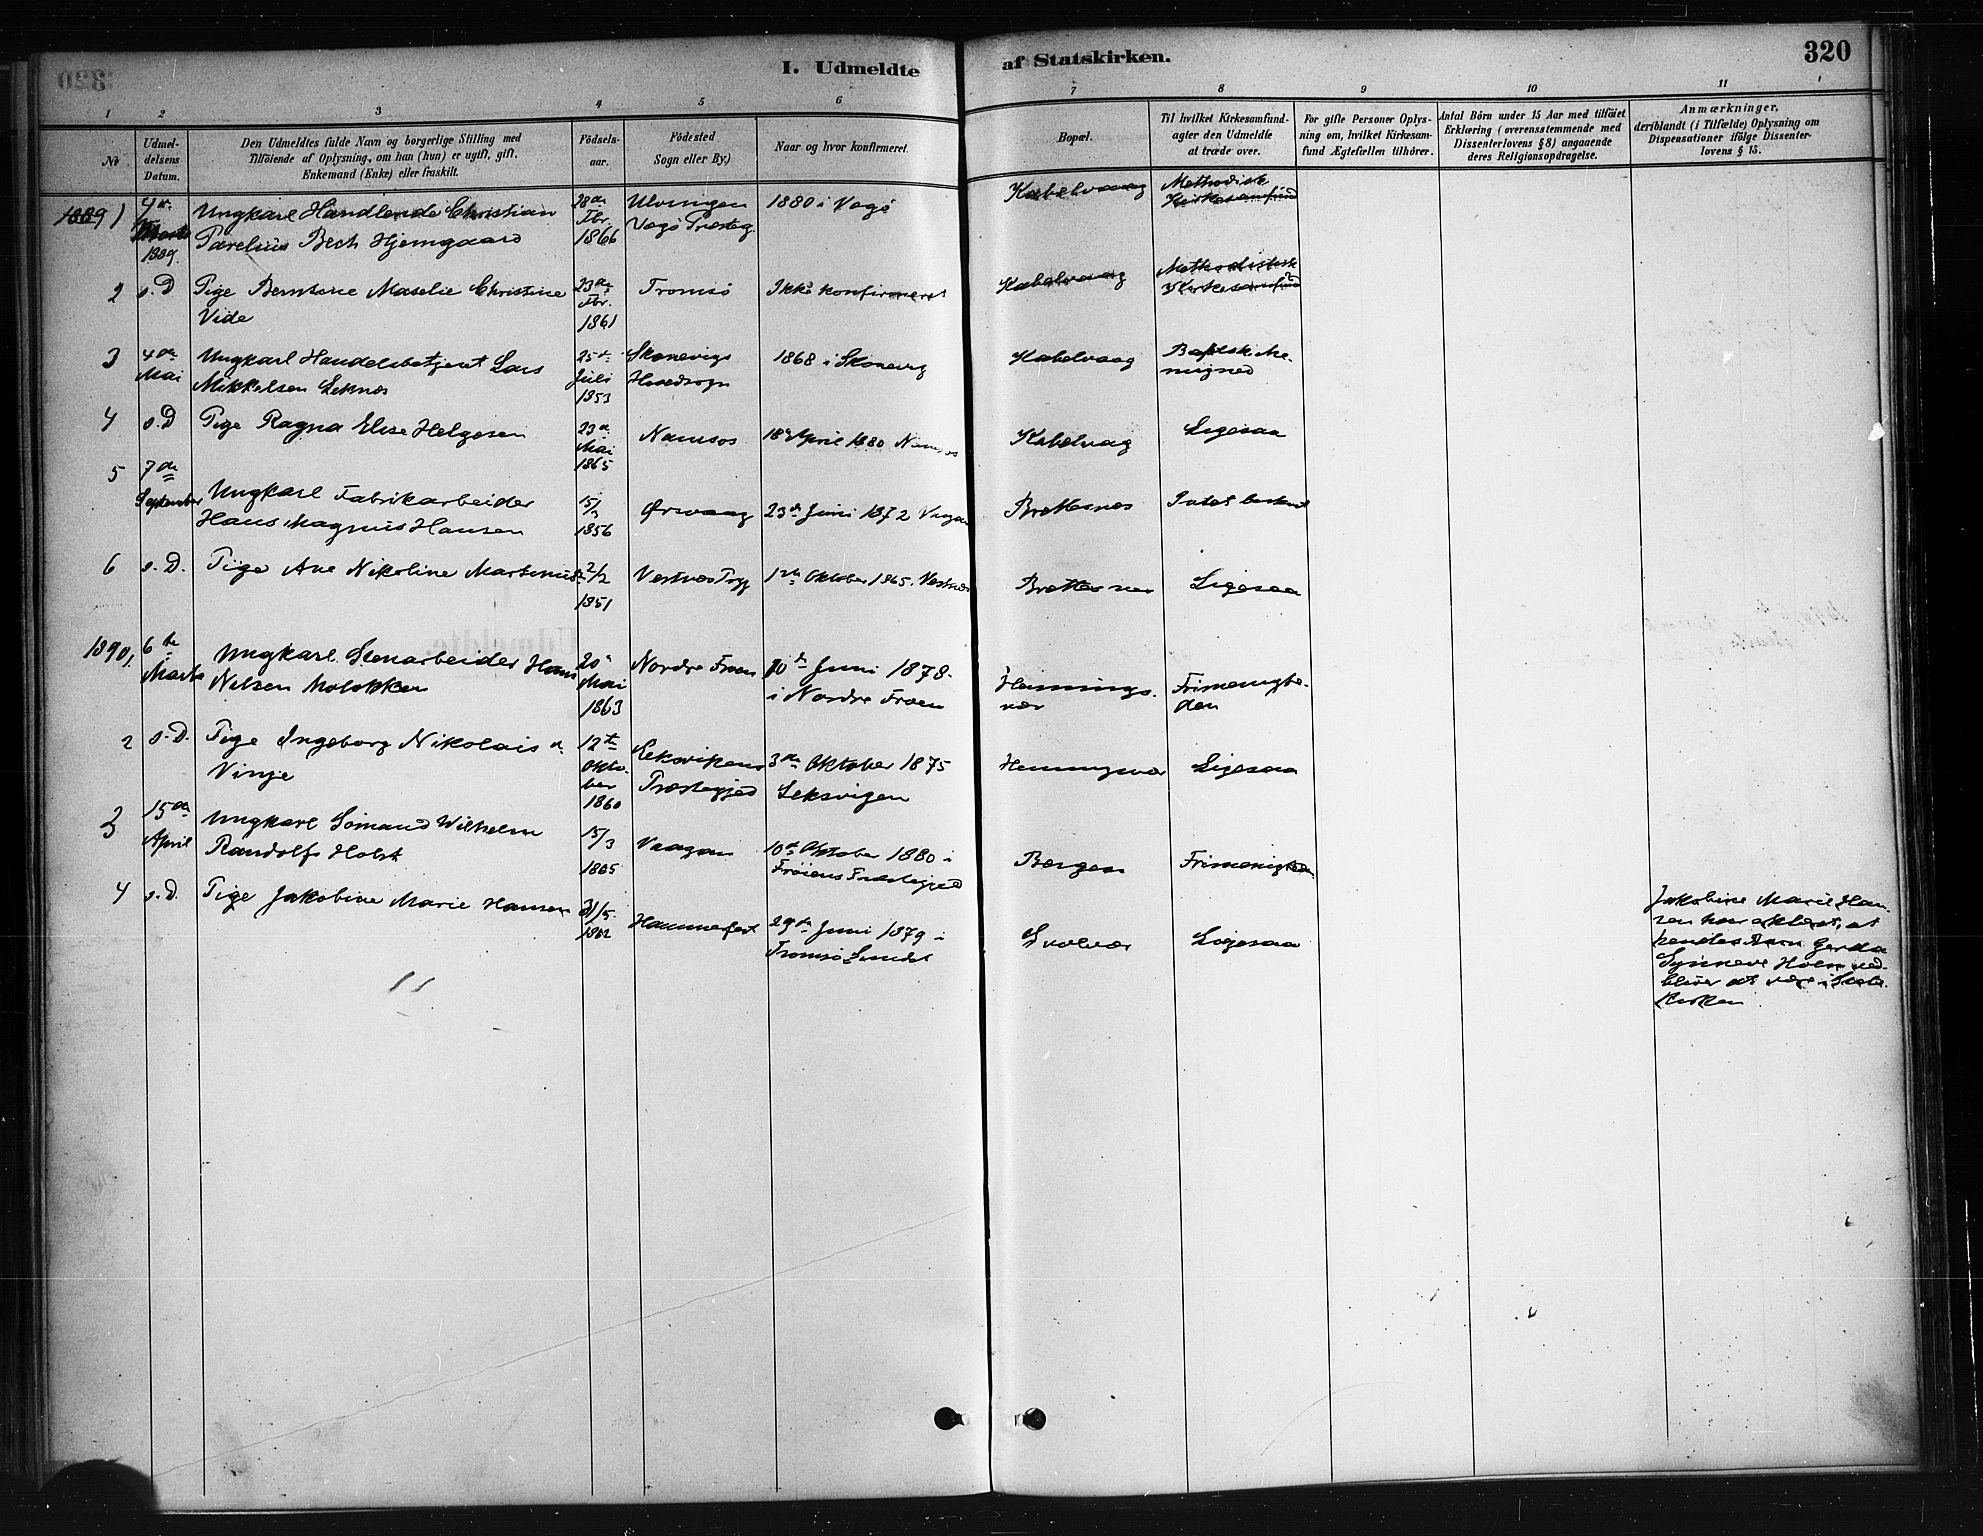 I. Udmeldte af Statskirken. 320
1 2 3 4 5 6 7 8 9 10 11
Nr
Udmeldelsens Datum.
Den Udmeldtes fulde Navn og borgerlige Stilling med
Tilføiende af Oplysning, om han (hun) er ugift, gift,
Enkemand (Enke) eller fraskilt.
Fødsels-
aar.
Fødested
Sogn eller By.)
Naar og hvor konfirmeret.
Bopæl.
Til hvilket Kirkesamfund-
agter den Udmeldte
at træde over.
For gifte Personer Oplys-
ning om, hvilket Kirkesam-
fund Ægtefællen tilhører.
Antal Börn under 15 Aar med tilføiet
Erklæring (overensstemmende med
Dissenterlovens § 8) angaaende
deres Religionsopdragelse.
Anmærkninger,
deriblandt (i Tilfælde) Oplysning om
Dispensationer ifølge Dissenter-
lovens § 15.
1889 1 4de Marts 1889.
Ungkarl Handlende Christian
Parelius Bech Hjemgaard
28de Fbr. 1866
Vaagø Præsteg.
1880 i Vagø
Kabelvaag
Methodisk
Kirkesamfund
2 s. D
Pige Berntine Maselie Christine
Vide
23de Fbr. 1861
Tromsø
Ikke konfirmeret
Kabelvaag
Methodistisk
Kirkesamfund
3 4de Mai
Ungkarl Handelsbetjent Lars
Mikkelsen Leknes
25de Juli 1853
Skonevigs
Hovedsogn
1868 i Skonevig
Kabelvaag
Baptistiske
menighed
4 s. D
Pige Ragna Elise Helgesen
23de Mai 1865
Namsos
18de April 1880 Namsos
Kabelvag
Ligesaa
5 7de September
Ungkarl Fabrikarbeider
Hans Magnus Hansen
1856
Ørsvaag
23de Juni 1872 Vaagan
Brettesnes
Intet bestemt
6 s. D.
Pige Ane Nikoline Martinus
2/2 1851
1ste Oktober 1865. Vestnes
Brettesnes
Ligesaa
1890 1. 6te Marts
Ungkarl Stenarbeider Hans
Nilsen Moløkken
20de Mai 1863
Nordre Froen
10de Juni 1878.
i Nordre Froen
Hennings-
vær
Frimenighe-
den
2 s. D.
Pige Ingeborg Nikolais d.
Vinje
12te Oktober 1860
Leksvikens
Præstegjeld
3de Oktober 1875
Leksvigen
Henningsvær
Ligesaa
3 15de April
Ungkarl Sømand Wilhelm
Randolf Holst
15/3 1865
Vaagan
10de Oktober 1880 i
Frøiens Præstegjeld
Bergen
Frimenigheden
4 s. D.
Pige Jakobine Marie Hansen
31/5 1862
Hammerfest
29de Juni 1879 i
Tromsø Landst
Svolvær
Ligesaa
Jakobine Marie Han-
sen har erklæret, at
hendes Barn Gerda
Synneve Holm ved-
bliver at være i Stats-
kirken